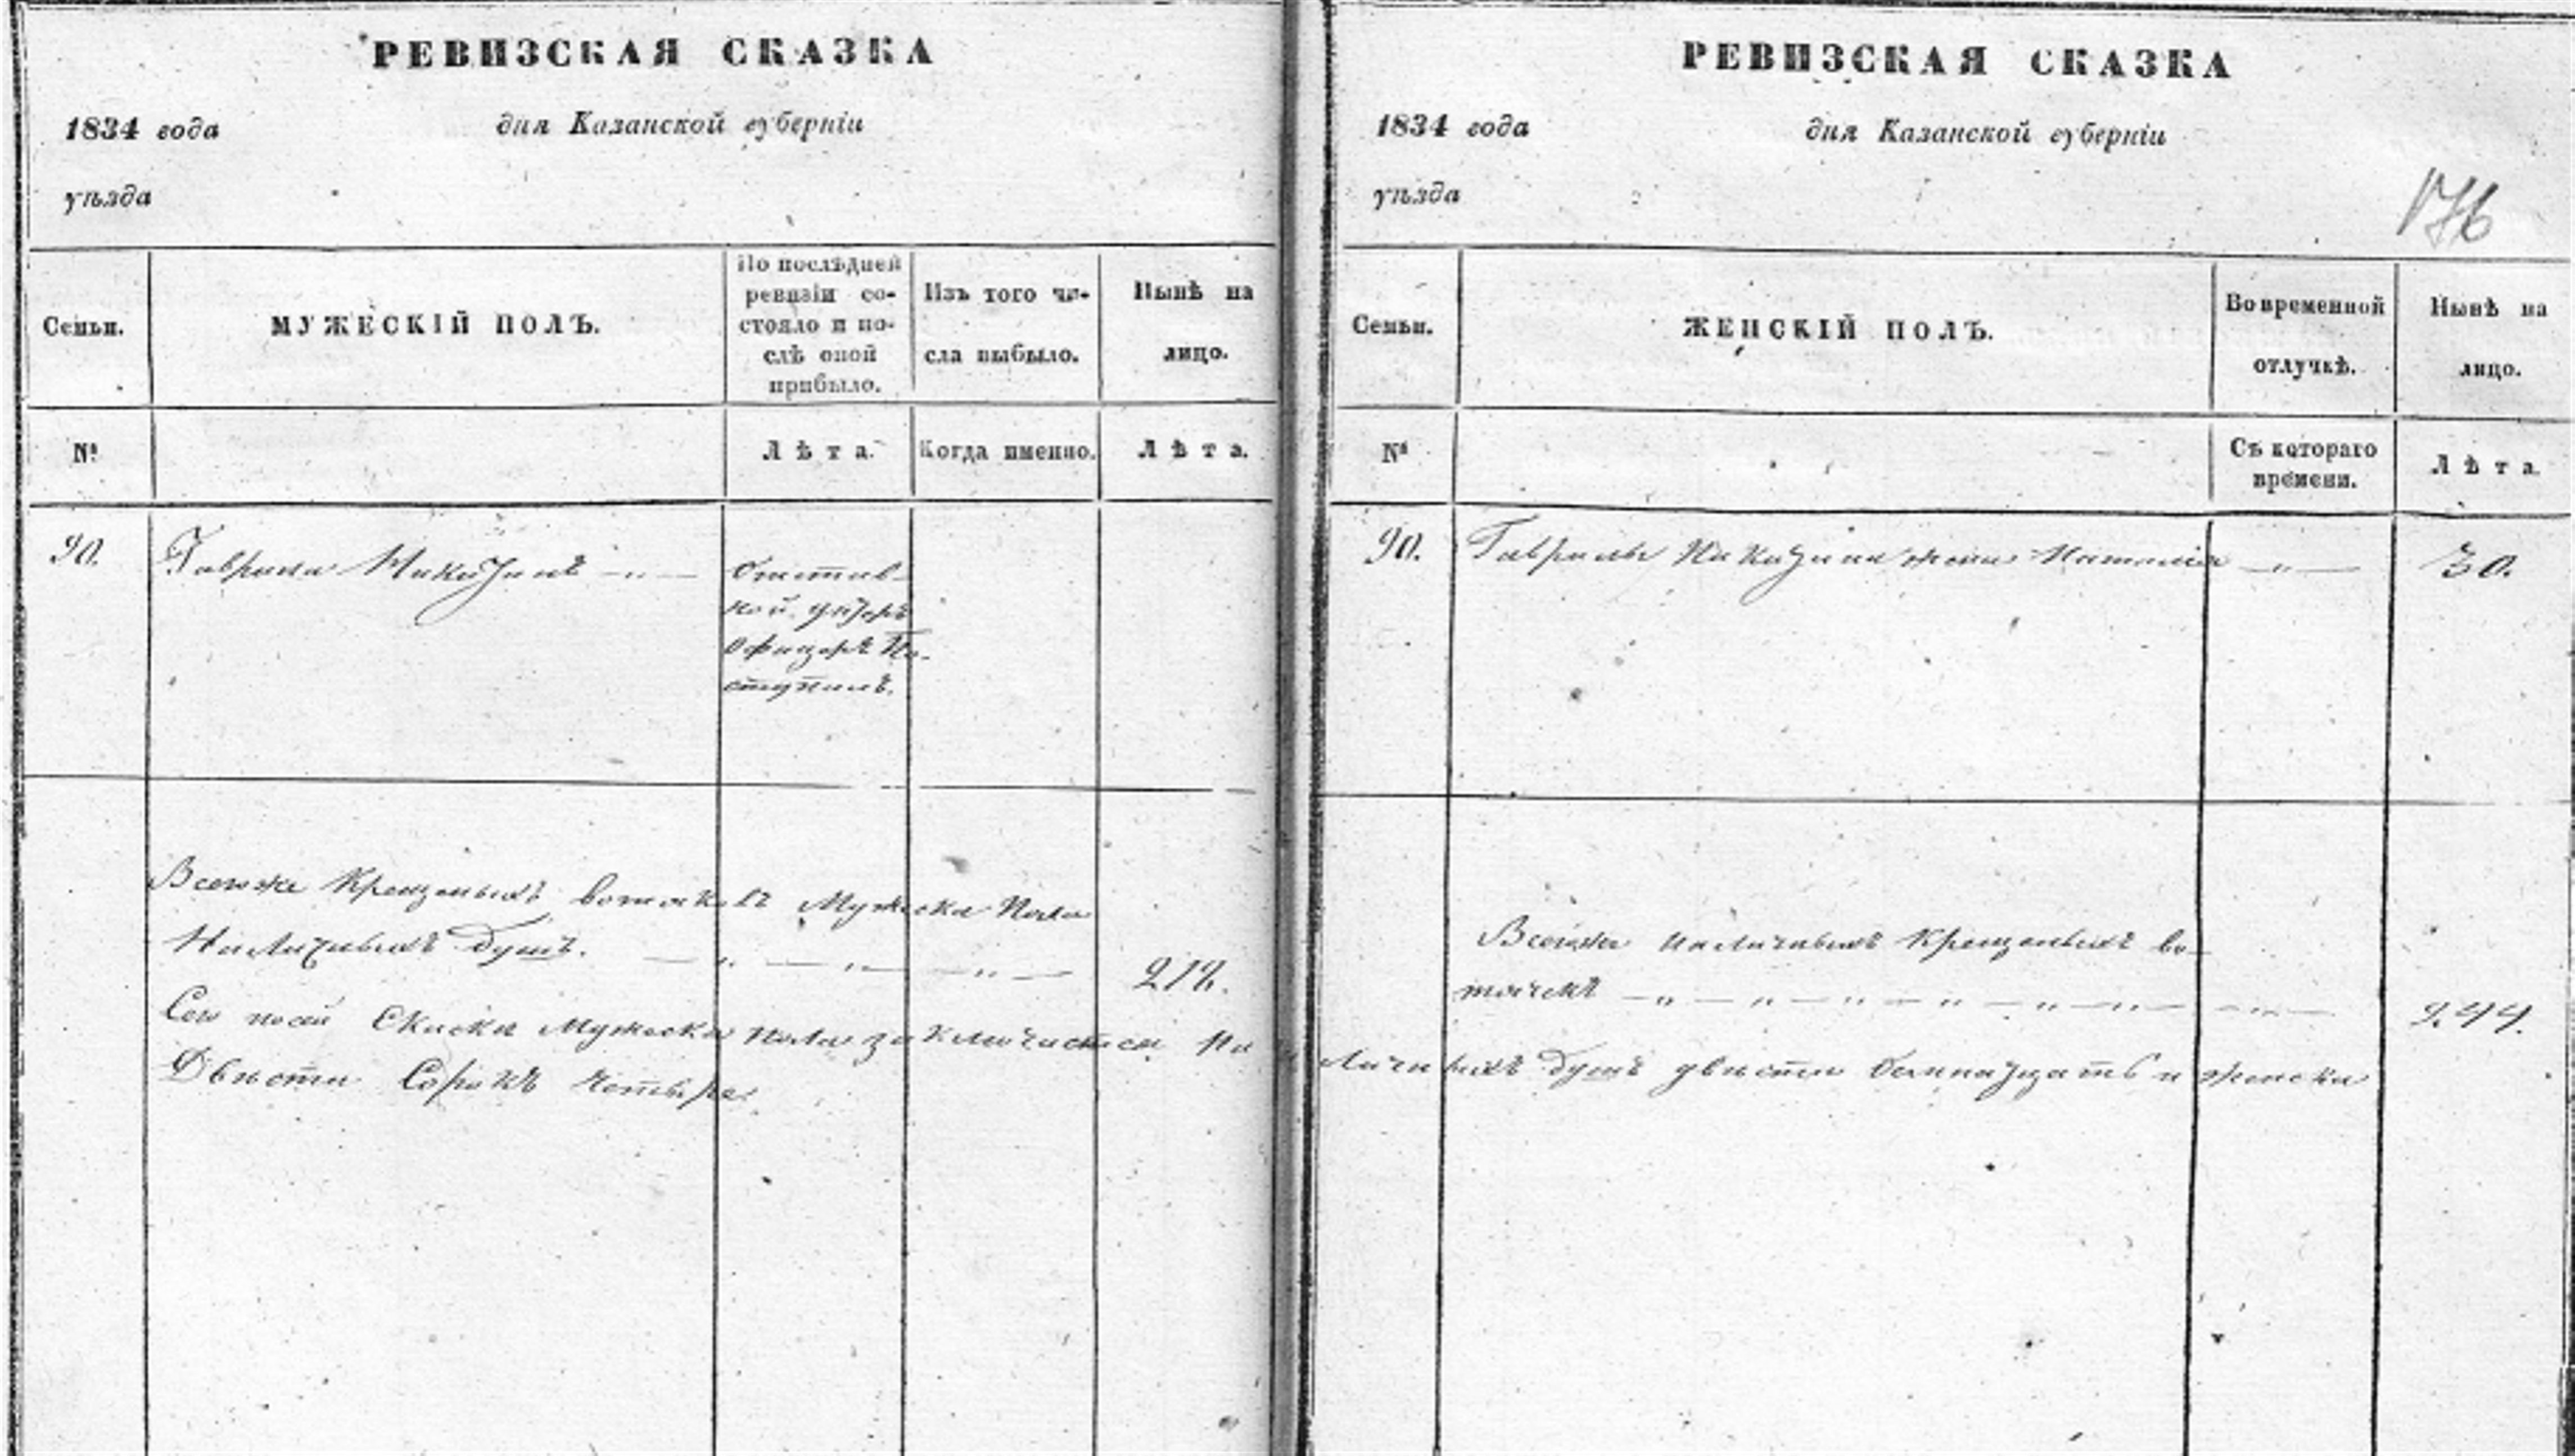 РЕВИЗСКАЯ СКАЗКА
1834 года
дня Казанской губерніи
уѣзда
Семьи.
МУЖЕСКІЙ ПОЛЪ.
По послѣдней
ревизіи со-
стояло и по-
слѣ оной
прибыло.
Изъ того чи-
сла выбыло.
Нынѣ на
лицо.
№
Лѣта.
Когда именно.
Лѣта.
90.
Гаврила Никитинъ — „ —
Отстав-
ной унтеръ
Офицеръ По-
ступилъ.
Всегоже Крещеныхъ вотяковъ Мужеска Пола
Наличныхъ Душъ. — „ — „ — „ — 218.
Сего посей Скаски Мужеска Пола заключается На
Двести Сорокъ Четыре
РЕВИЗСКАЯ СКАЗКА
1834 года
дня Казанской губерніи
уѣзда
176
Семьи.
ЖЕНСКІЙ ПОЛЪ.
Во временной
отлучкѣ.
Нынѣ на
лицо.
№
Съ котораго
времени.
Лѣта
90.
Гаврилы Никитина жена Наталія — „ — 30.
Всегоже наличныхъ Крещеныхъ во-
тячекъ — „ — „ — „ — „ — „ — „ — „ — 244.
личныхъ Душъ двести осминадцать и женска